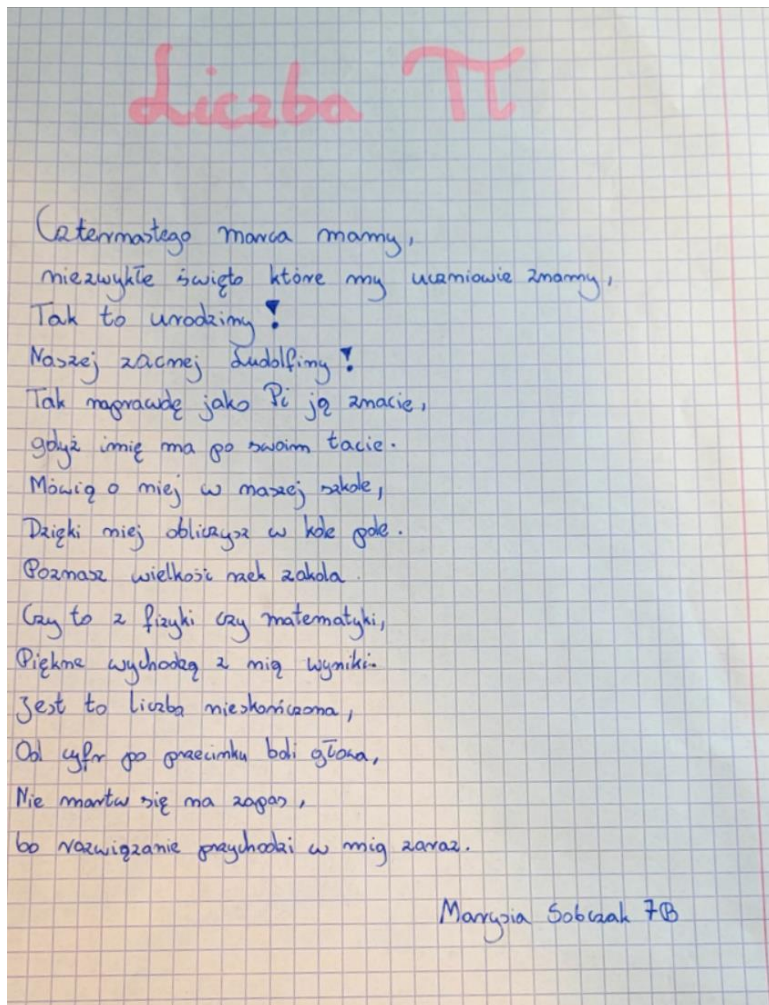 Liczba π
Czternastego marca mamy,
niezwykłe święto które my uczniowie znamy,
Tak to urodziny!
Naszej zacnej Ludolfiny!
Tak naprawdę jako Pi ją znacie,
gdyż imię ma po swoim tacie.
Mówią o niej w naszej szkole,
Dzięki niej obliczysz w kole pole.
Poznasz wielkość rzek zakola.
Czy to z fizyki czy matematyki,
Piękne wychodzą z nią wyniki.
Jest to liczba nieskończona,
Od cyfr po przecinku boli głowa,
Nie martw się na zapas,
bo rozwiązanie przychodzi w mig zaraz.
Marysia Sobczak 7B